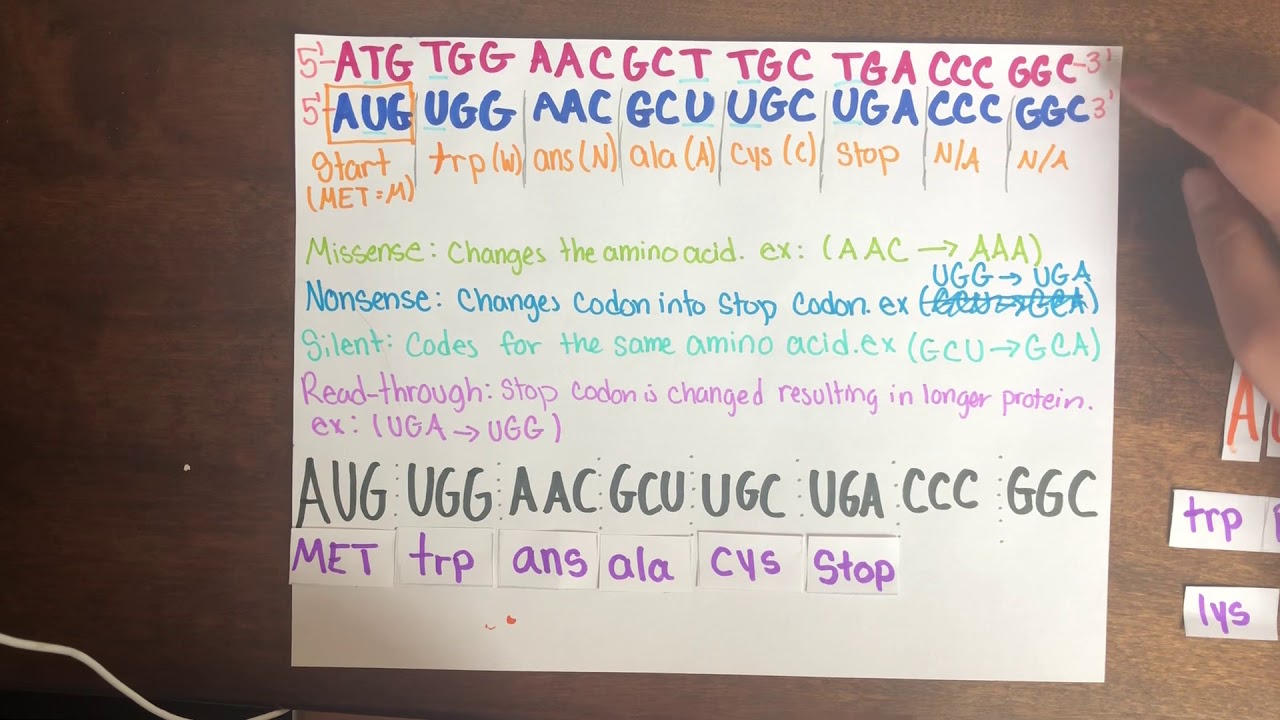 5'-ATG TGG AACGCT TGC TGA CCC GGC-3'
5'-AUG UGG AAC GCU UGC UGA CCC GGC 3'
Start trp(W) ans(N) ala(A) Cys(C) Stop N/A N/A
(MET=M)
Missense: Changes the amino acid. ex: (AAC → AAA)
UGG → UGA
Nonsense: Changes Codon into Stop Codon. ex (GCU→GCA)
Silent: Codes for the same amino acid.ex (GCU→GCA)
Read-through: Stop Codon is changed resulting in longer protein.
ex: (UGA → UGG)
AUG UGG AAC GCU UGC UGA CCC GGC
MET trp ans ala Cys Stop
A
trp
lys